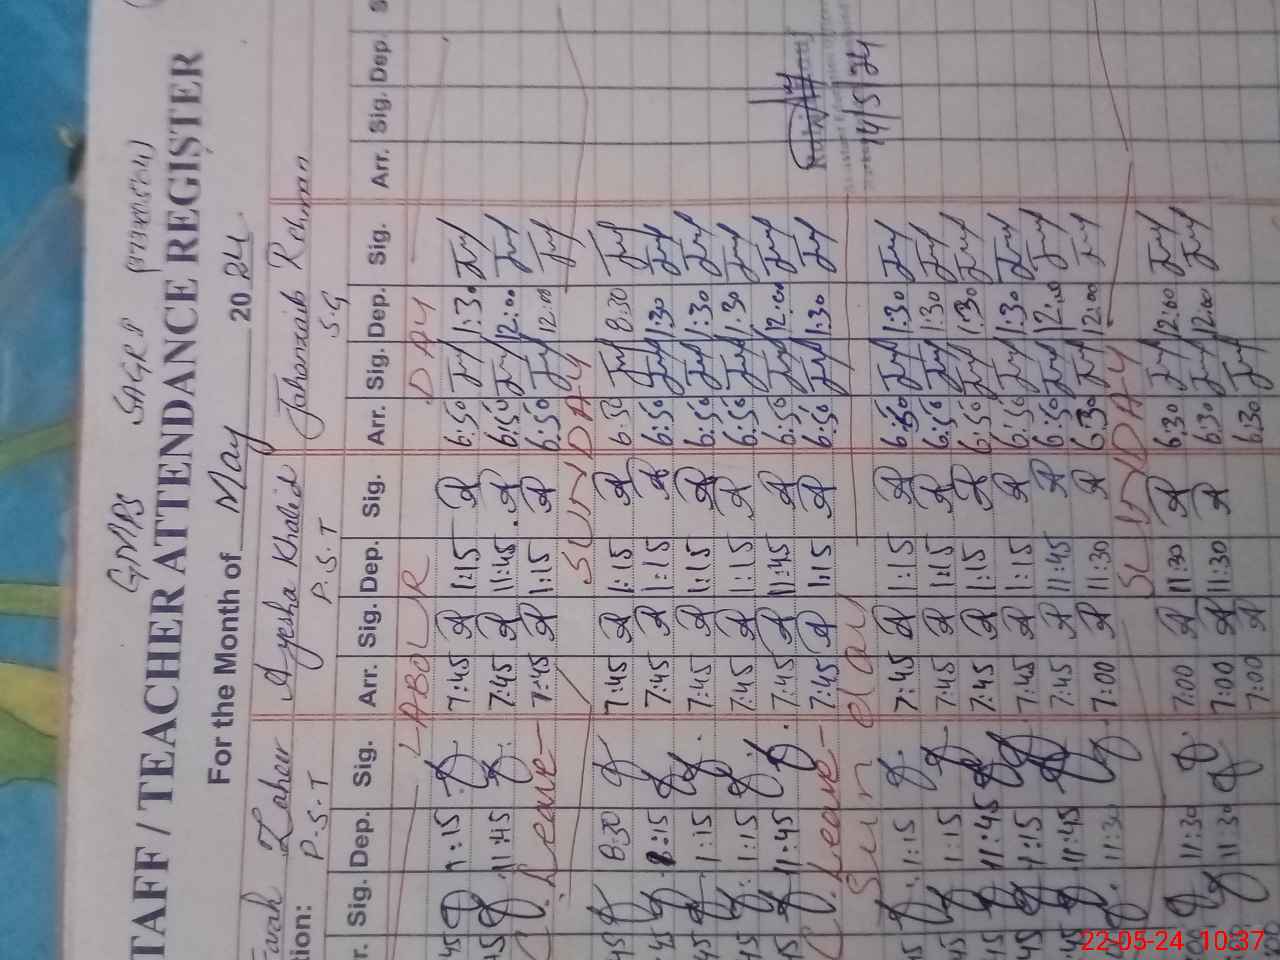 GMPS SAGRI
TAFF / TEACHER ATTENDANCE REGISTER
For the Month of May 2024
Farah Zaheer Ayesha Khalid Jahanzaib Rehman
tion: P.S.T P.S.T S.G
r. Sig. Dep. Sig. Arr. Sig. Dep. Sig. Arr. Sig. Dep. Sig. Arr. Sig. Dep. S
LABOUR DAY
45 1:15 7:45 1:15 6:50 1:30
45 11:45 7:45 11:45 6:50 12:00
C. Leave 7:45 1:15 6:50 12:00
SUNDAY
45 8:30 7:45 1:15 6:50 8:30
45 1:15 7:45 1:15 6:50 1:30
45 1:15 7:45 1:15 6:50 1:30
45 1:15 7:45 1:15 6:50 1:30
45 11:45 7:45 11:45 6:50 12:00
C. Leave 7:45 1:15 6:50 1:30
14/5/24
Sunday
45 1:15 7:45 1:15 6:50 1:30
45 1:15 7:45 1:15 6:50 1:30
45 11:45 7:45 1:15 6:50 1:30
45 1:15 7:45 1:15 6:50 1:30
45 11:45 7:45 11:45 6:50 12:00
11:30 7:00 11:30 6:30 12:00
SUNDAY
00 11:30 7:00 11:30 6:30 12:00
00 11:30 7:00 11:30 6:30 12:00
7:00 6:30
22-05-24 10:37